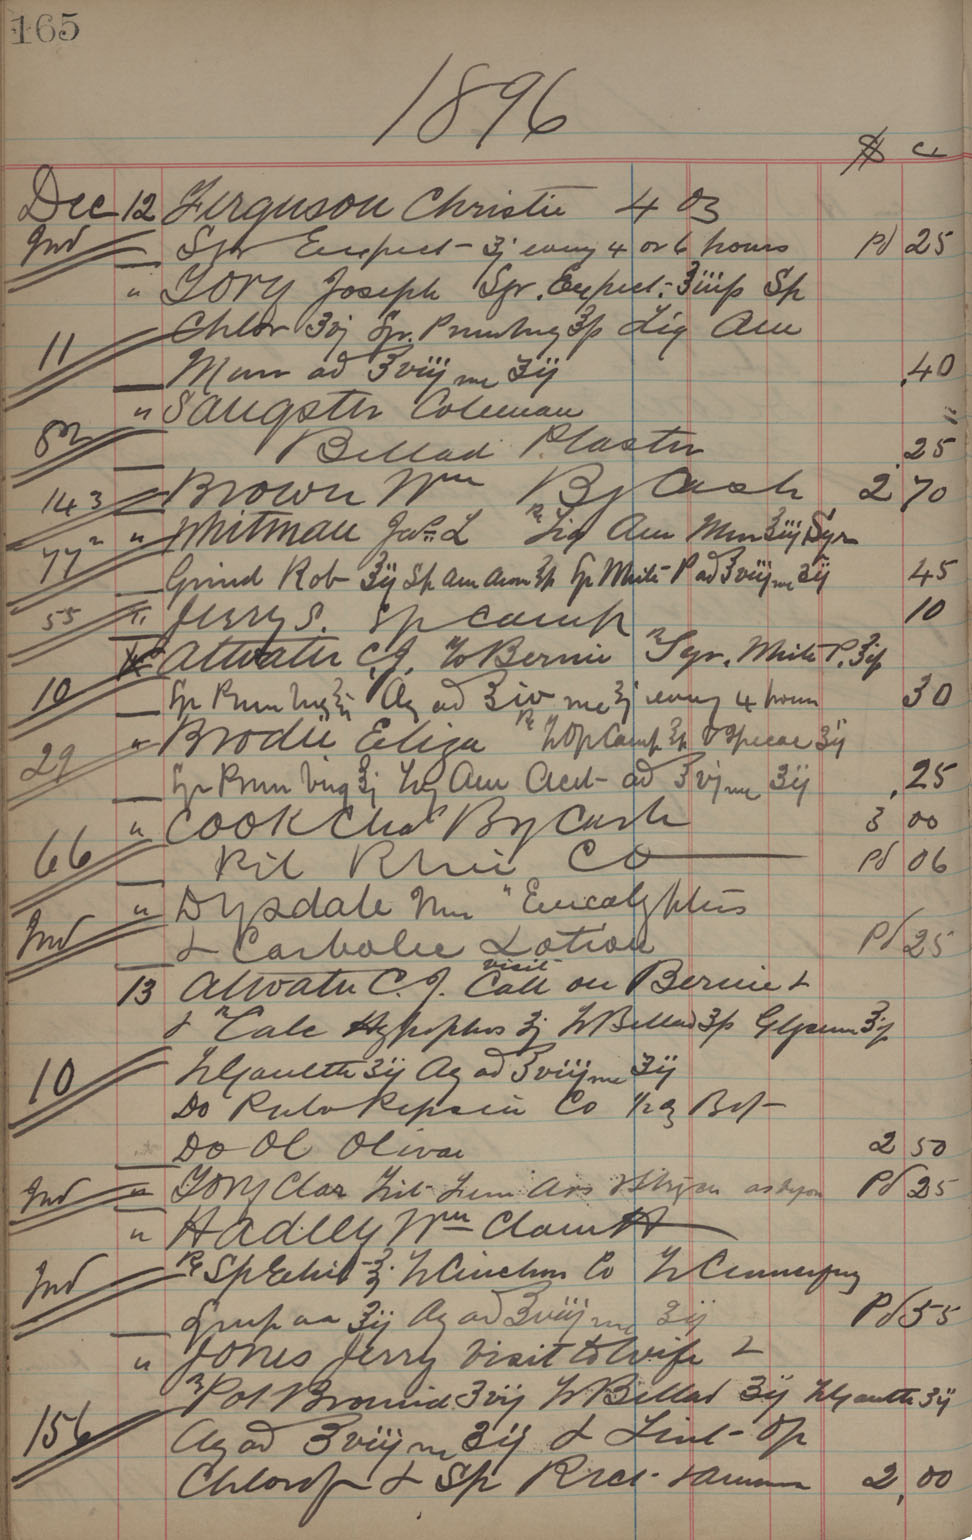 165
1896
$ c
Dec 12 Ferguson Christie 4 oz
Ind Syr Expect - ʒj every 4 or 6 hours Pd 25
" Tory Joseph Syr. Expect. ʒiiiss Sp
11 Chlor ʒvj Syr. Prun Virg ʒss Liq Am
Mur ad ʒviij me ʒij .40
" Sangster Coleman "
82 Bellad Plaster .25
143 Brown Wm By Cash 2 70
77 " Whitman Jas L ℞ Liq Am Mur ʒiij Syr
Grind Rob ʒij Sp Am Arom ʒss Syr White P ad ʒviij me ʒij 45
55 " Jerry S. Sp Camp 10
Attwater C.J. to Bernie ℞ Syr. White P. ʒij
10 Syr Prun Virg ʒj Aq ad ʒiv me ʒj every 4 hours 30
29 " Brodie Eliza ℞ Tr Op Camp ʒss V Ipecac ʒij
Syr Prun Virg ʒj Liq Am Acet - ad ʒvj me ʒij .25
" Cook Chas By Cash 3 00
66 Pil Rhei Co Pd 06
" Drysdale Mrs " Eucalyptus
Ind & Carbolic Lotion Pd 25
visit
13 Attwater C.J. Call on Bernie &
& ℞ Calc Hypophos ʒj Tr Bellad ʒss Glycerin ʒij
10 Tr Gaulth ʒij Aq ad ʒviij me ʒij
Do Pulv Pepsin Co ½ oz Bot
Do Ol Olivae 2 50
Ind " Tory Clar Pd 25
" Hadley Wm Clam H
Ind ℞ Sp Ether ʒj Tr Cinchon Co Tr
aa ʒij Aq ad ʒviij me ʒij Pd 55
" Jones Jerry Visit to Wife &
℞ Pot Bromid ʒvij Tr Bellad ʒij Tr Gaulth ʒij
156 Aq ad ʒviij me ʒij & Lint - Op
Chlorof & Sp Rect - & Ammon 2.00